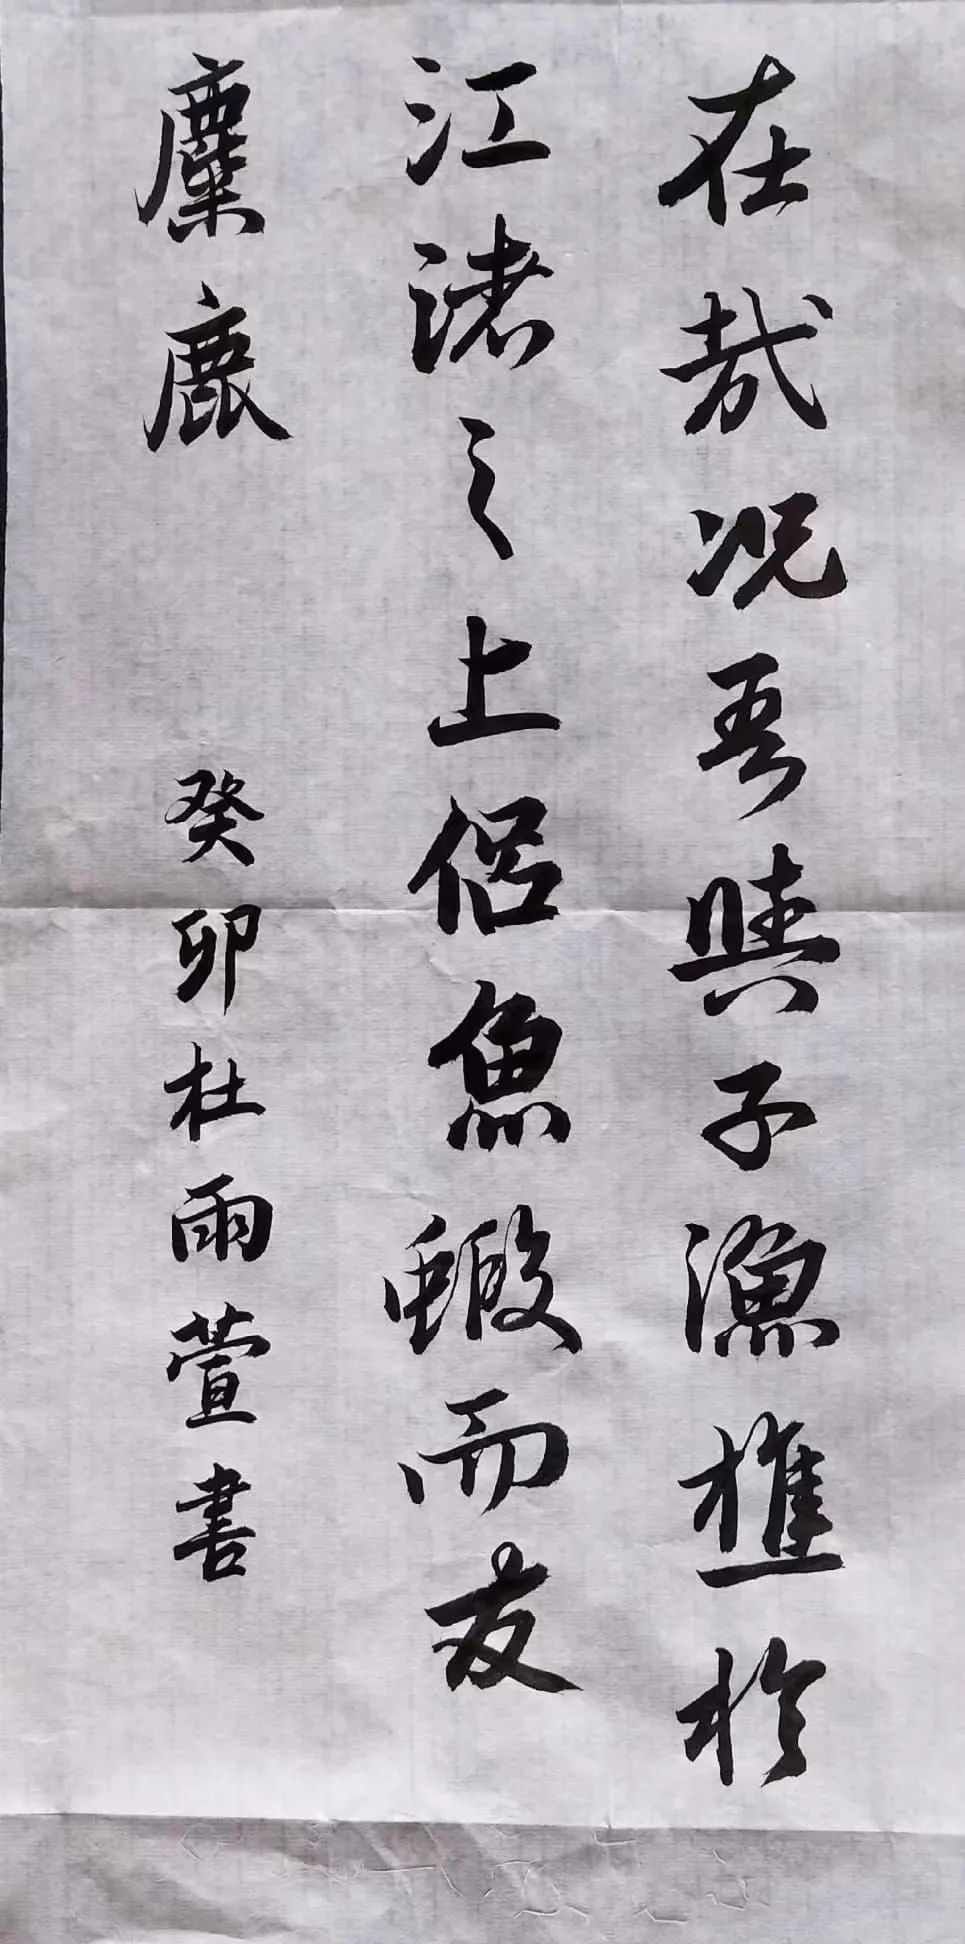 在哉况吾與子漁樵於
江渚之上侶魚鰕而友
麋鹿
癸卯杜雨萱書